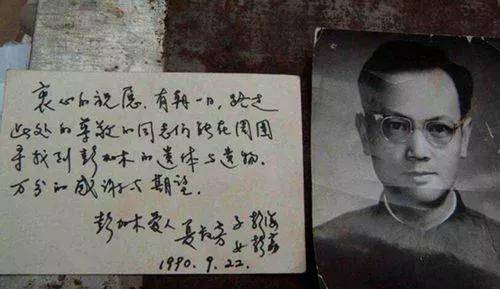 衷心的祝愿，有朝一日，路过
此处的尊敬的同志们能在周围
寻找到彭加木的遗体与遗物。
万分的感谢与期望。
彭加木爱人 夏叔芳 子 彭海
女 彭荔
1990.9.22.